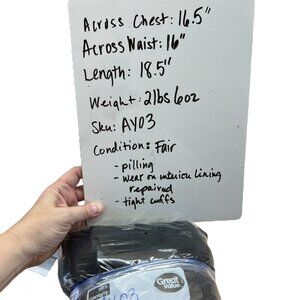 Across Chest: 16.5"
Across Waist: 16"
Length: 18.5"
Weight: 2lbs 6oz
Sku: AY03
Condition: Fair
- pilling
- wear on interior lining
repaired
- tight cuffs
Great Value
AY03